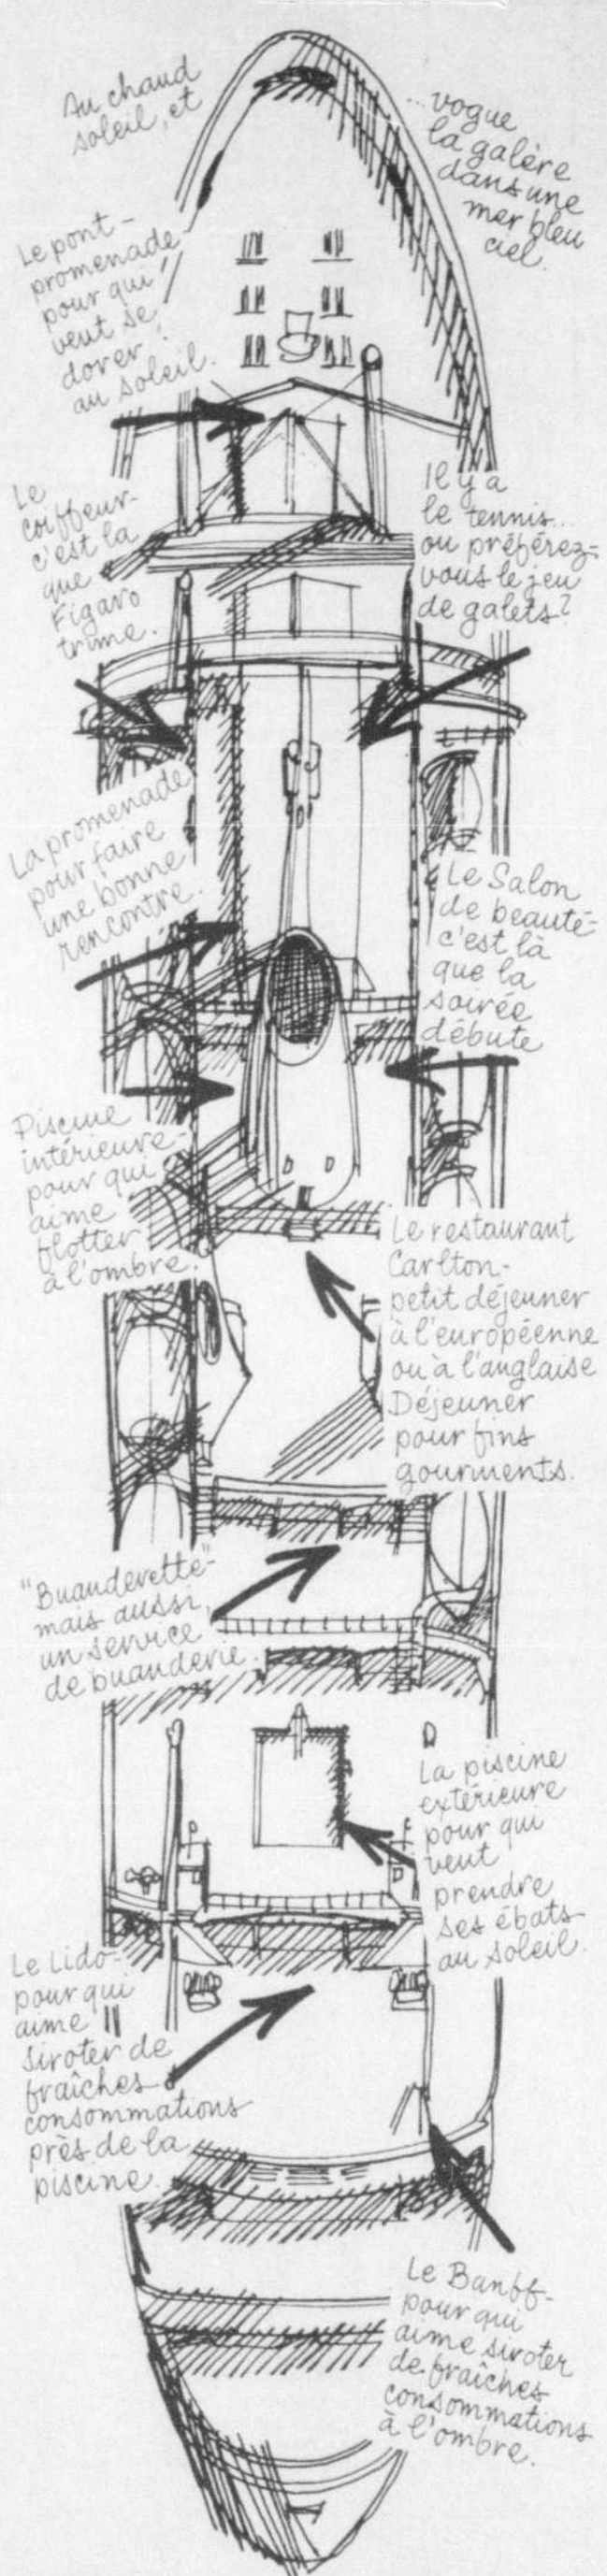 Au chaud
soleil, et
...vogue
la galère
dans une
mer bleu
ciel.
Le pont-
promenade-
pour qui
veut se
dorer
au soleil.
Le
coiffeur-
c'est là
que
Figaro
trime.
Il y a
le tennis...
ou préférez-
vous le jeu
de galets?
La promenade
pour faire
une bonne
rencontre.
Le Salon
de beauté-
c'est là
que la
soirée
débute
Piscine
intérieure-
pour qui
aime
flotter
à l'ombre.
Le restaurant
Carlton-
petit déjeuner
à l'européenne
ou à l'anglaise
Déjeuner
pour fins
gourments.
"Buanderette"-
mais aussi,
un service
de buanderie.
La piscine
extérieure
pour qui
veut
prendre
ses ébats
au soleil.
Le Lido-
pour qui
aime
siroter de
fraîches
consommations
près de la
piscine.
Le Banff-
pour qui
aime siroter
de fraîches
consommations
à l'ombre.